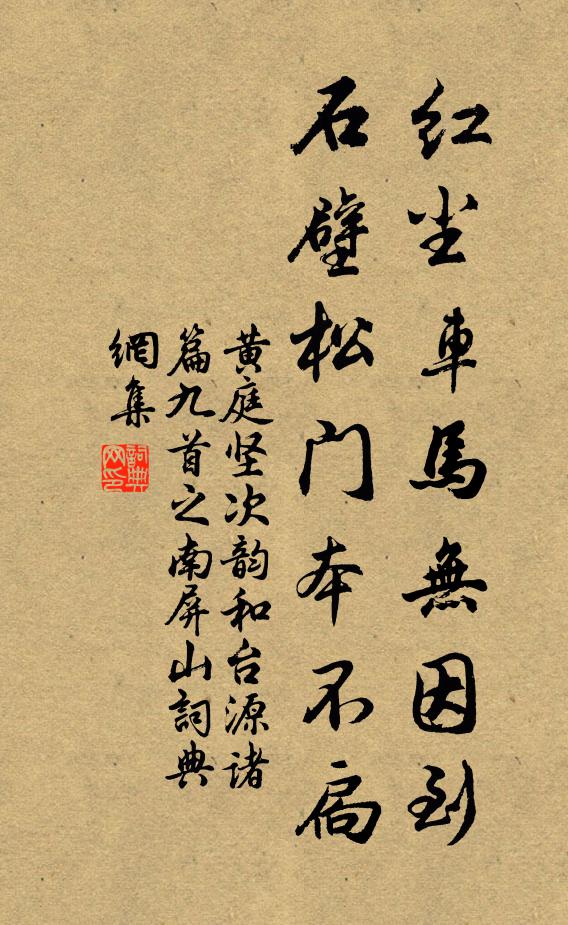 红尘車馬無因到
石壁松门本不扃
黄庭坚次韵和台源诸
篇九首之南屏山詞典
網集
詞典网印